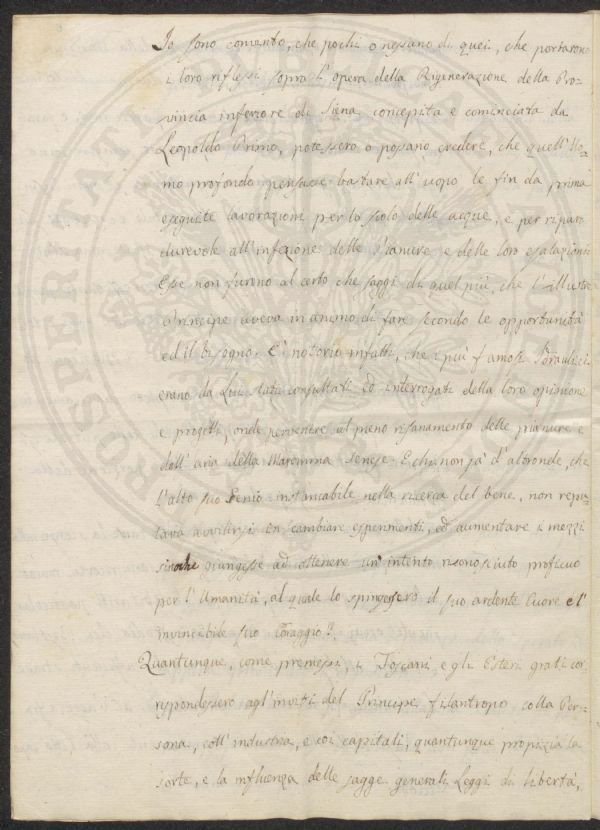 Io sono convinto, che pochi o nessuno di quei, che portarono
i loro riflessi sopra l'opera della Rigenerazione della Pro-
vincia inferiore di Siena, concepita e cominciata da
Leopoldo Primo, potessero o possano credere, che quell'Uo-
mo profondo pensasse bastare all'uopo le fin da prima
eseguite lavorazioni per lo scolo delle acque, e per riparo
durevole all'infezione delle Pianure e delle loro esalazioni:
Esse non furono al certo che saggi di quel più, che l'illustre
Principe aveva in animo di fare secondo le opportunità
ed il bisogno. E' notorio infatti, che i più famosi Idraulici
erano da Lui stati consultati ed interrogati della loro opinione
e progetti, onde pervenire al pieno risanamento delle pianure e
dell'aria della Maremma Senese. E chi non sà d'altronde, che
l'alto suo Genio instancabile nella ricerca del bene, non repu-
tava avvilirsi in cambiare esperimenti, ed aumentare i mezzi
sinochè giungesse ad ottenere un'intento riconosciuto proficuo
per l'Umanità, al quale lo spingessero il suo ardente Cuore e l'
invincibile suo Coraggio?
Quantunque, come premessi, i Toscani, e gli Esteri grati cor
rispondessero agl'inviti del Principe filantropo colla Per-
sona, coll'industria, e coi capitali, quantunque propizia la
sorte, e la influenza delle sagge generali Leggi di libertà,
PROSPERITATI PUBLICAE